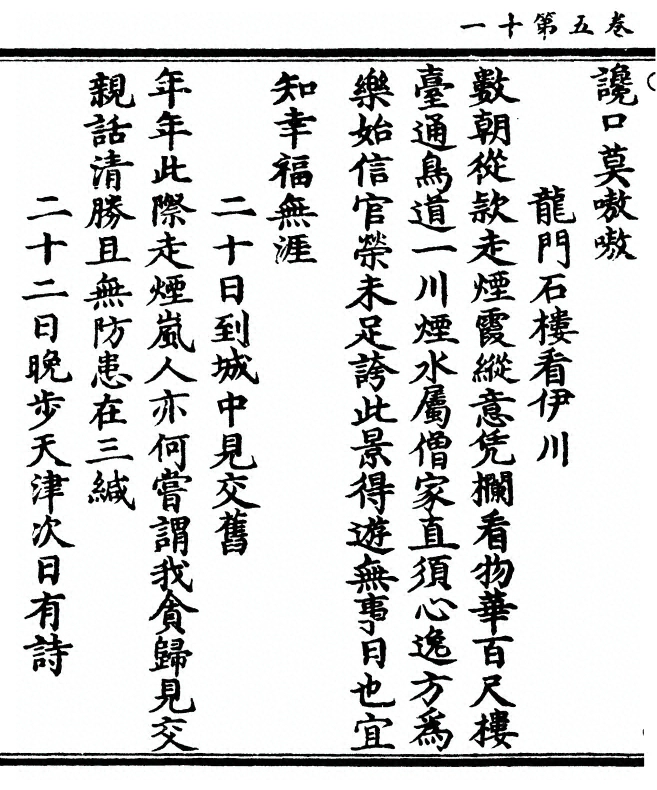 卷五第十一
讒口莫嗷嗷
龍門石樓看伊川
數朝從款走煙霞縱意凭欄看物華百尺樓
臺通鳥道一川煙水屬僧家直須心逸方為
樂始信官榮未足誇此景得遊無事日也宜
知幸福無涯
二十日到城中見交舊
年年此際走煙嵐人亦何嘗謂我貪歸見交
親話清勝且無防患在三緘
二十二日晚步天津次日有詩